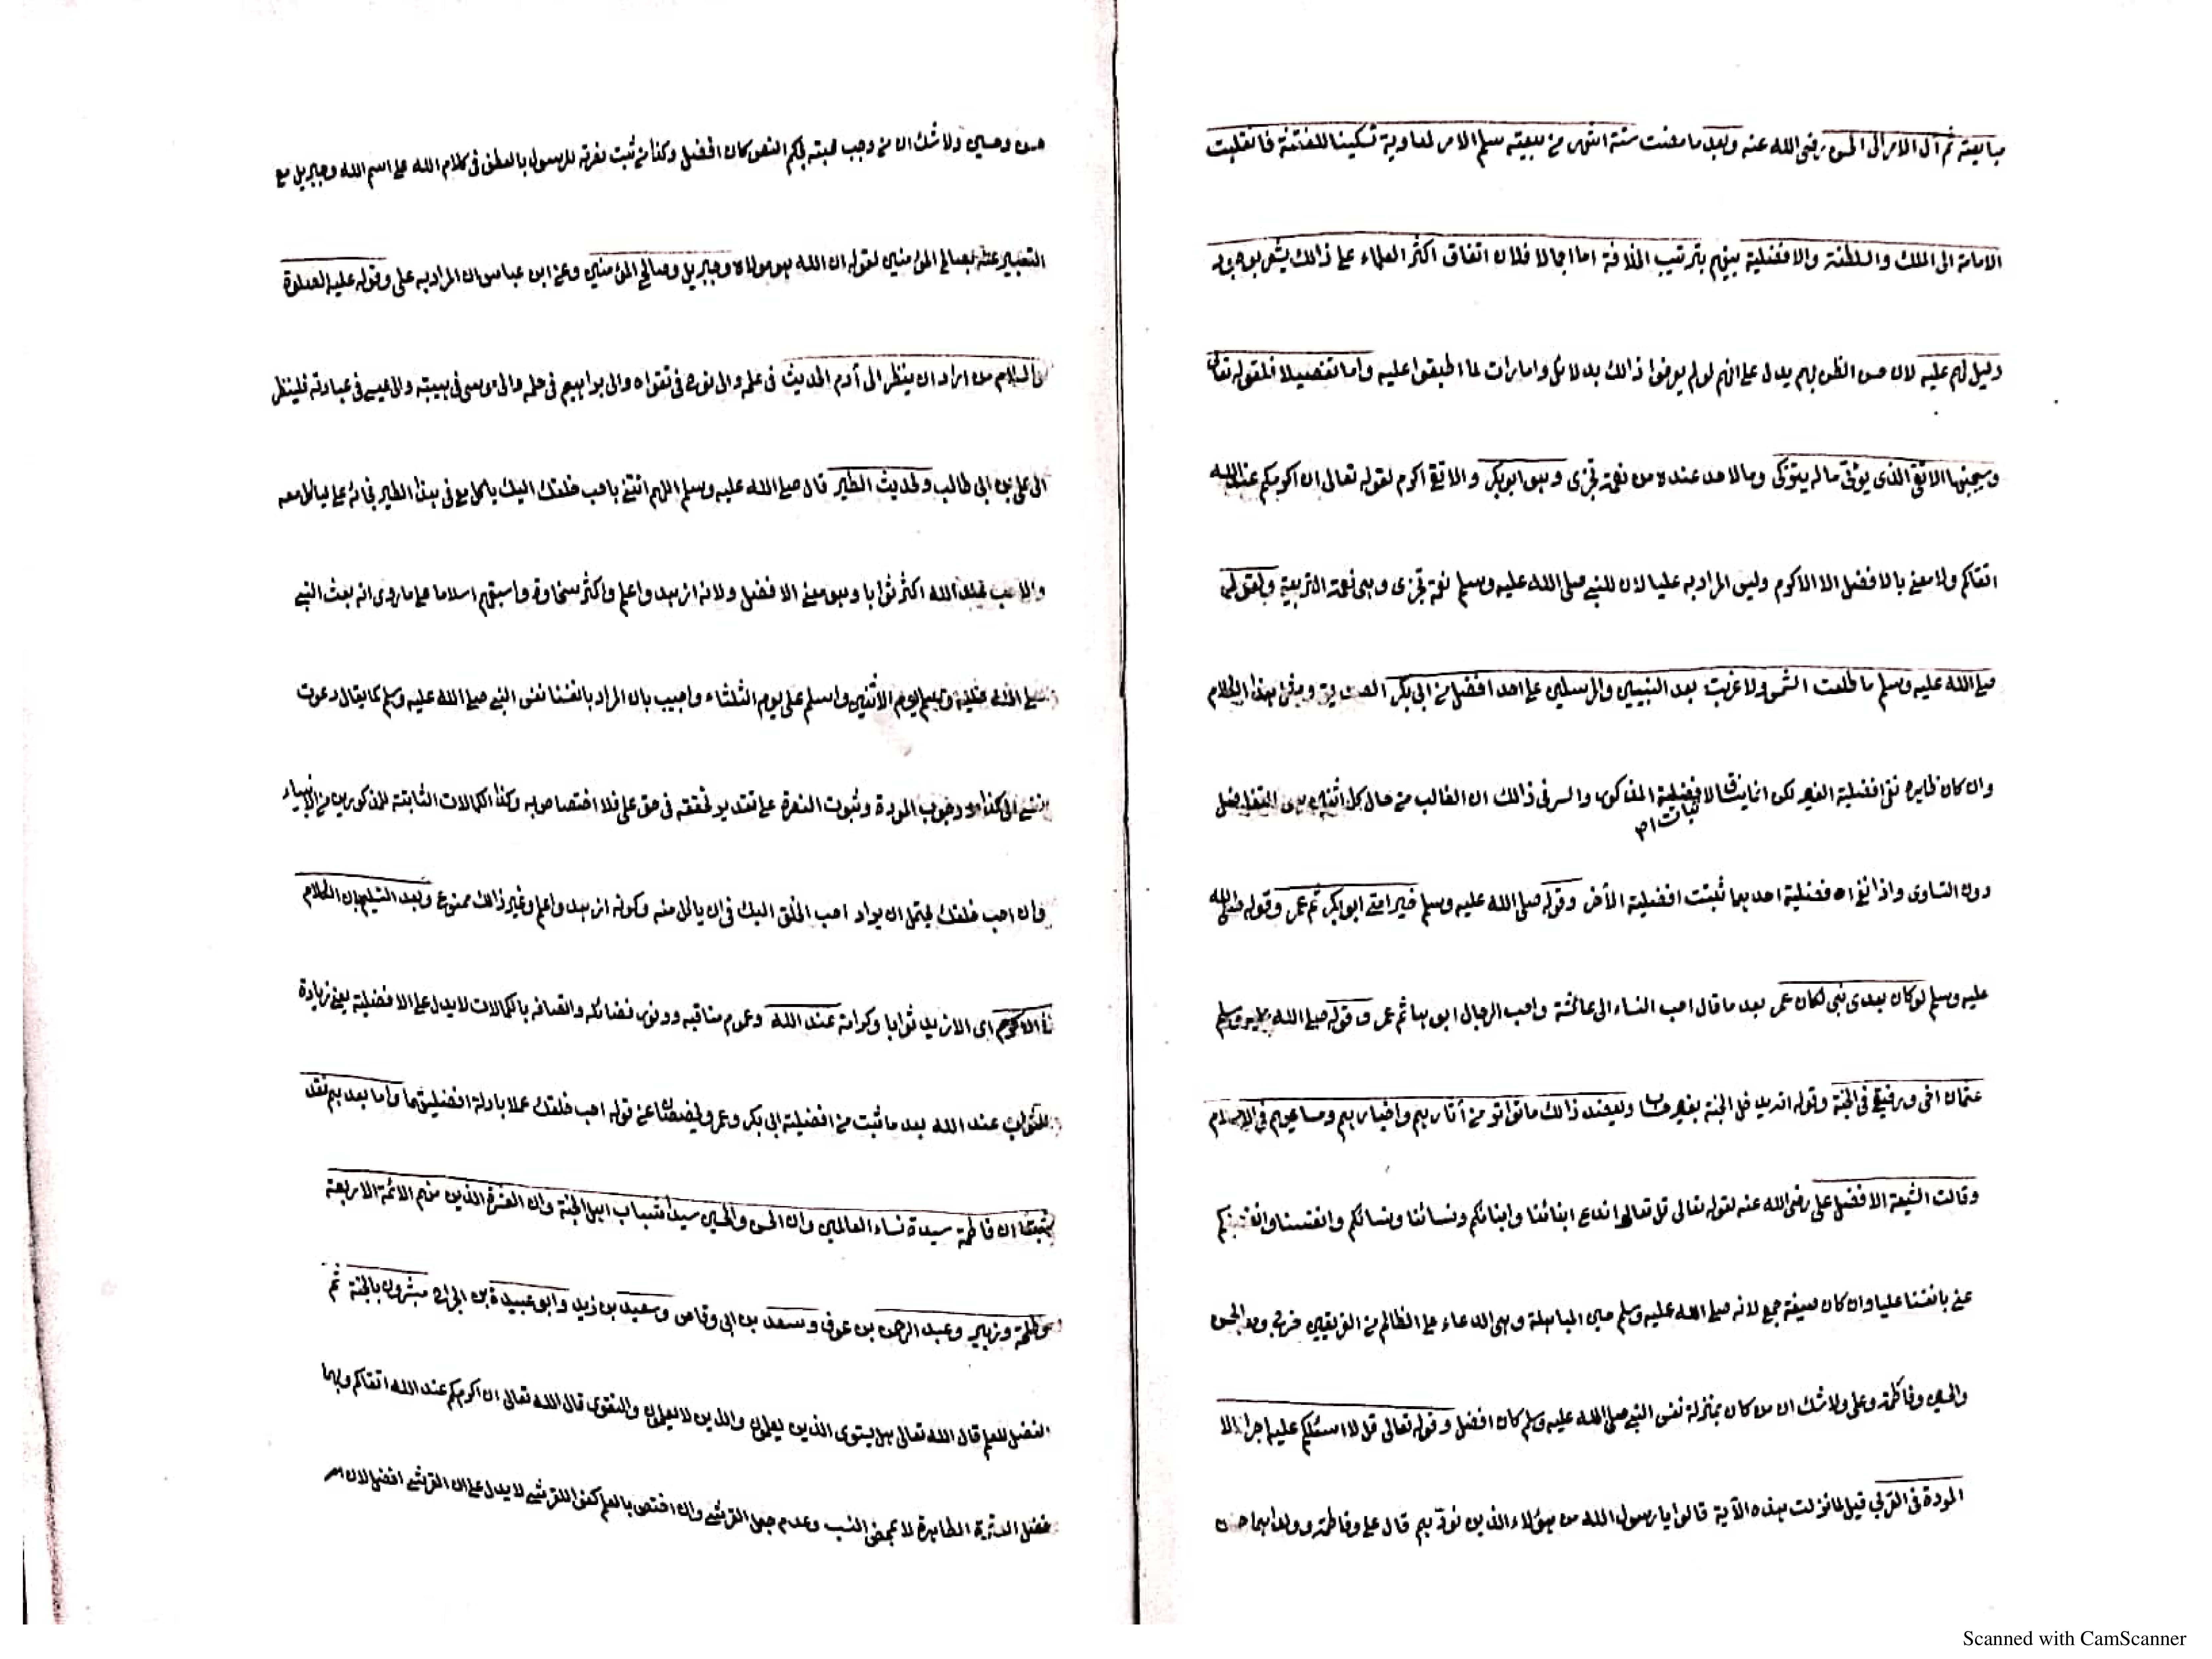 مبايعته ثم آل الامر الى الحسن رضى الله عنه وبعد ما مضت ستة اشهر من بيعته سلم الامر لمعاوية تسكينا للفتنة فانقلبت
الامامة الى الملك والسلطنة والافضلية بينهم بترتيب الخلافة اما اجمالا فلان اتفاق اكثر العلماء على ذالك يشعر بوجود
دليل لهم عليه لان حسن الظن بهم يدل على انهم لو لم يعرفوا ذالك بدلائل وامارات لما اطبقوا عليه واما تفصيلا فلقوله تعالى
وسيجنبها الاتقى الذى يؤتى ماله يتزكى وما لاحد عنده من نعمة تجزى وهو ابو بكر والاتقى اكرم لقوله تعالى ان اكرمكم عند الله
اتقاكم ولا معنى بالافضل الا الاكرم وليس المراد به عليا لان للنبى صلى الله عليه وسلم نعمة تجزى وهى نعمة التربية ولقوله
صلى الله عليه وسلم ما طلعت الشمس ولا غربت بعد النبيين والمرسلين على احد افضل من ابى بكر الصديق ومثل هذا الكلام
وان كان ظاهره نفى افضلية الغير لكن انما يساق لافضلية المذكور والسر فى ذالك ان الغالب من حال كل اثنين هو التفاضل
لاثبات ١٣
دون التساوى واذا نفى افضلية احدهما ثبتت افضلية الأخر وقوله صلى الله عليه وسلم خير امتى ابو بكر ثم عمر وقوله صلى الله
عليه وسلم لو كان بعدى نبى لكان عمر بعد ما قال احب النساء الى عائشة واحب الرجال ابوها ثم عمر وقوله صلى الله عليه وسلم
عثمان اخى ورفيقى فى الجنة وقوله انه يدخل الجنة بغير حساب ويعضد ذالك ما تواتر من أثارهم واخبارهم ومساعيهم فى الاسلام
وقالت الشيعة الافضل على رضى الله عنه لقوله تعالى قل تعالوا ندع ابنائنا وابنائكم ونسائنا ونسائكم وانفسنا وانفسكم
عنى بانفسنا عليا وان كان صيغة جمع لانه صلى الله عليه وسلم حين المباهلة وهى الدعاء على الظالم من الفريقين خرج ومعه الحسن
والحسين وفاطمة وعلى ولا شك ان من كان بمنزلة نفس النبى صلى الله عليه وسلم كان افضل وقوله تعالى قل لا اسئلكم عليه اجرا الا
المودة فى القربى قيل لما نزلت هذه الآية قالوا يا رسول الله من هؤلاء الذين نودّ بهم قال على وفاطمة وولداهما حسن
حسن وحسين ولا شك ان من وجب محبته بحكم النص كان افضل وكذا من ثبت نصرته للرسول بالعطف فى كلام الله على اسم الله وجبريل مع
التعبير عنه بصالح المؤمنين لقوله ان الله هو مولاه وجبريل وصالح المؤمنين وعن ابن عباس ان المراد به على وقوله عليه الصلوة
والسلام من اراد ان ينظر الى أدم الحديث فى علمه والى نوح فى تقواه والى ابراهيم فى حلمه والى موسى فى هيبته والى عيسى فى عبادته فلينظر
الى على بن ابى طالب ولحديث الطير قال صلى الله عليه وسلم اللهم ائتنى باحب خلقك اليك ياكل معى فى هذا الطير فجائه على فاكل معه
والاحب عند الله اكثر ثوابا وهو معنى الافضل ولانه ازهد واعلم واكثر سخاوة واسبقهم اسلاما على ما روى انه بعث النبى
صلى الله عليه وسلم يوم الاثنين واسلم على يوم الثلثاء واجيب بان المراد بانفسنا نفس النبى صلى الله عليه وسلم كما يقال دعوت
نفسى الى كذا ووجوب المودة وثبوت النصرة على تقدير تحققه فى حق على فلا اختصاص به وكذا الكمالات الثابتة للمذكورين من الانبياء
وان احب خلقك يحتمل ان يراد احب الخلق اليك فى ان ياكل منه وكونه ازهد واعلم وغير ذالك ممنوع وبعد التسليم فان الكلام
فى الاكرم اى الازيد ثوابا وكرامة عند الله وعموم مناقبه ووفور فضائله واتصافه بالكمالات لا يدل على الافضلية يعنى زيادة
الثواب عند الله بعد ما ثبت من افضلية ابى بكر وعمر ويخصصان عن قوله احب خلقك عملا بادلة افضليتهما واما بعدهم فقد
ثبت ان فاطمة سيدة نساء العالمين وان الحسن والحسين سيدا شباب اهل الجنة وان العشرة الذين منهم الائمة الاربعة
وطلحة وزبير وعبد الرحمن بن عوف وسعد بن ابى وقاص وسعيد بن زيد وابو عبيدة بن الجراح مبشرون بالجنة ثم
الفضل للعلم قال الله تعالى هل يستوى الذين يعلمون والذين لا يعلمون والتقوى قال الله تعالى ان اكرمكم عند الله اتقاكم وبهما
فضل العترة الطاهرة لا بمحض النسب وعدم جعل القرشى وان اختص بالعلم كفوا للقرشى لا يدل على ان القرشى افضل لان
Scanned with CamScanner